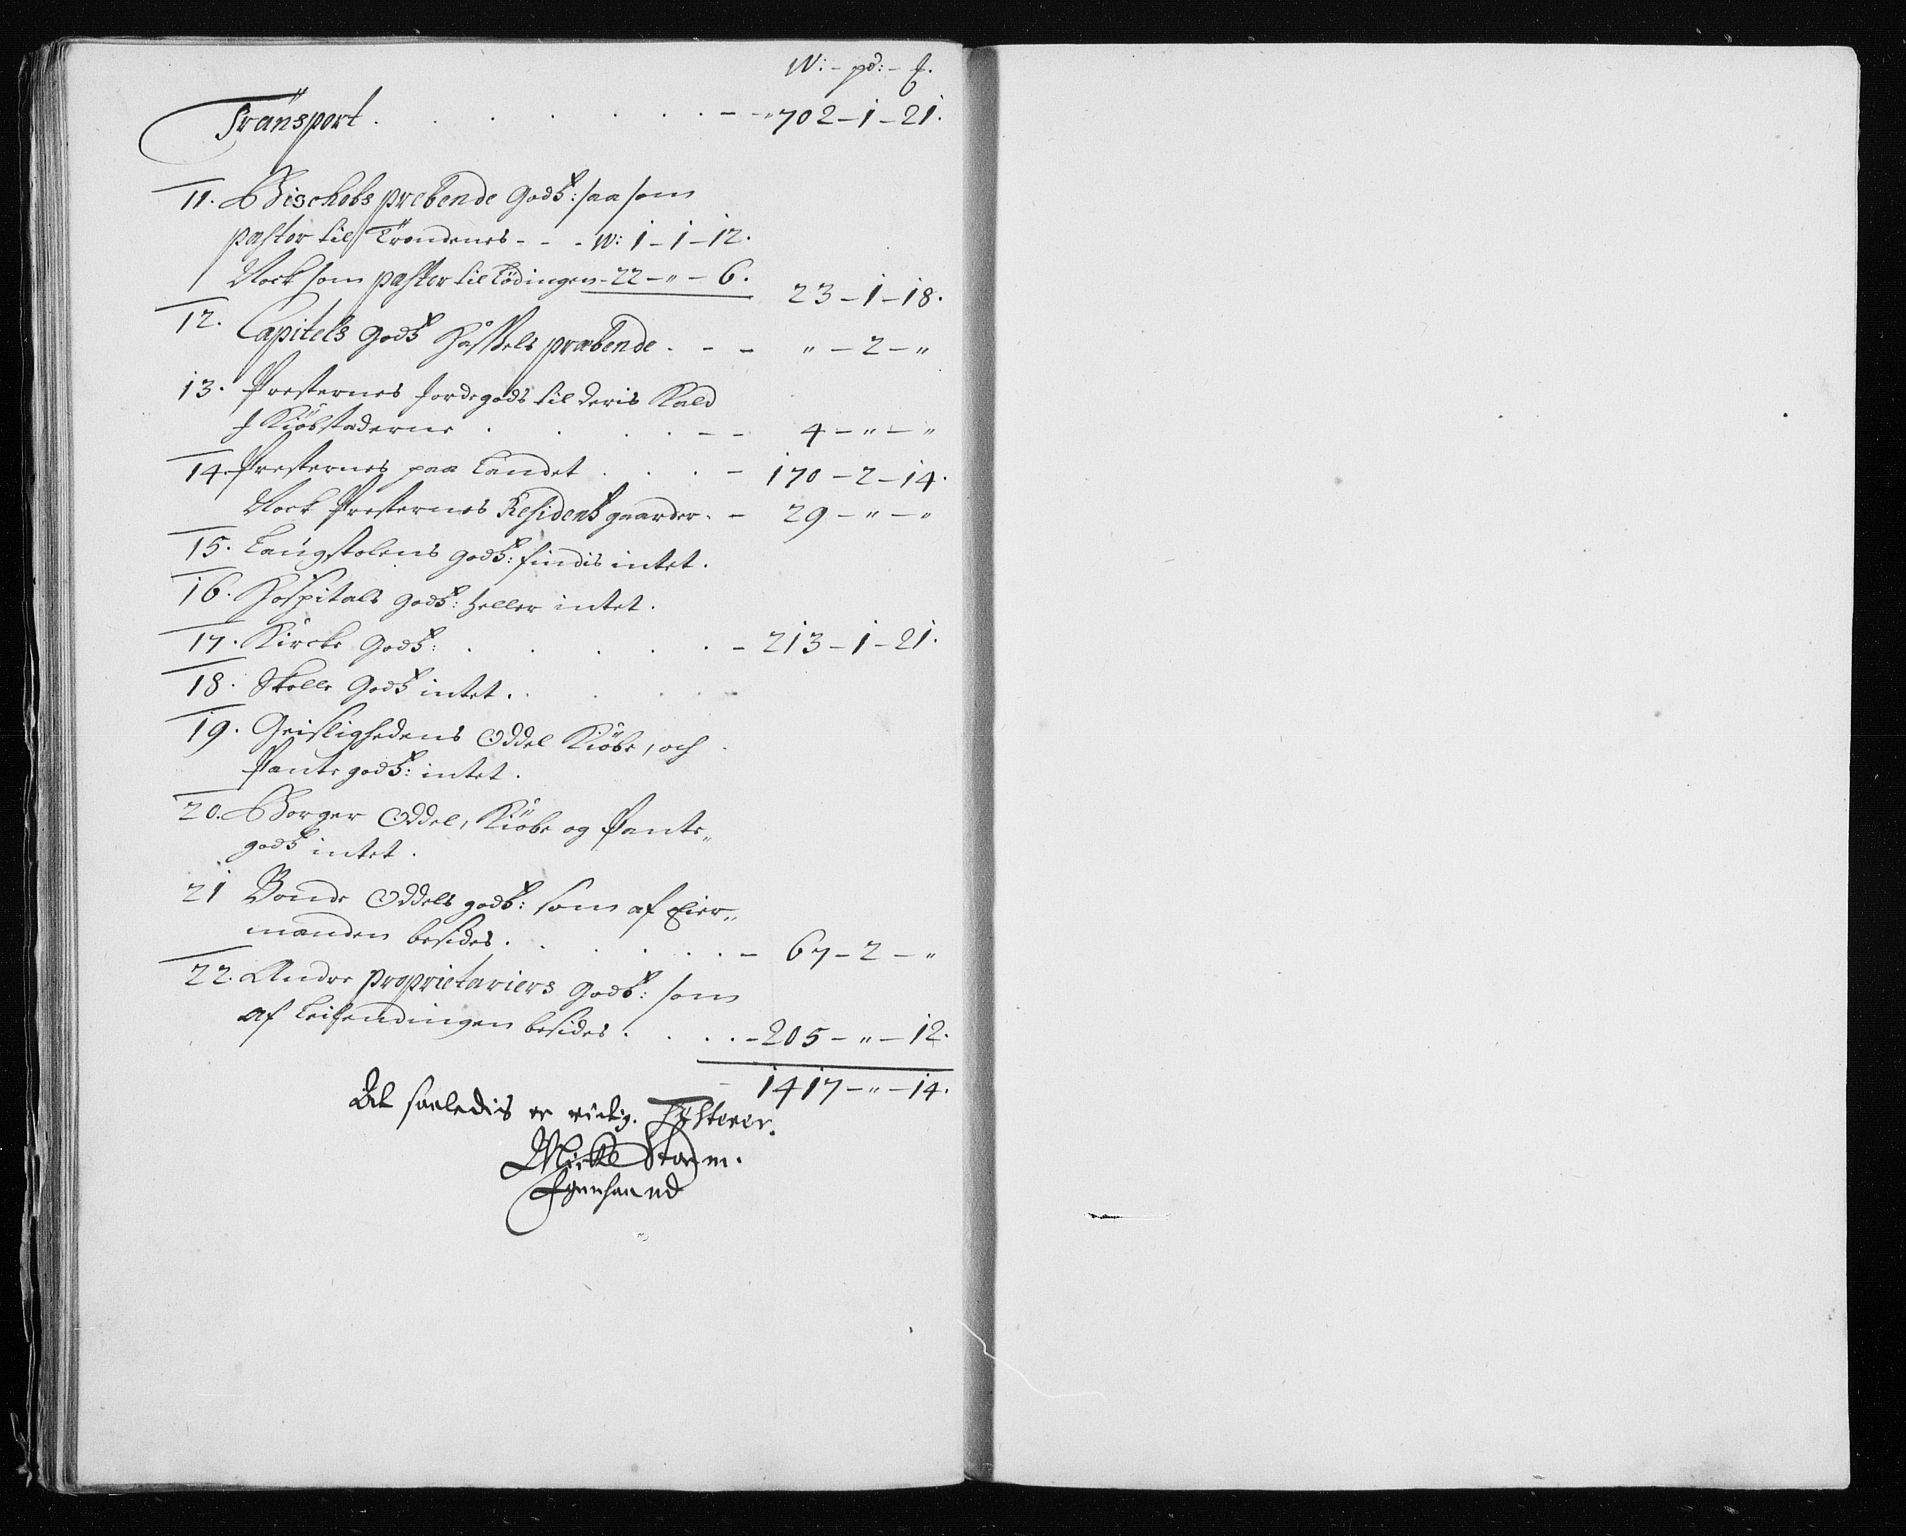 W: - pd: - £.
Transport . . . . . . . - - „ 702 - 1 - 21.
11. Bischobs prebende Godtz: saa som
pastor til Trondenes - - - W: 1 - 1 - 12.
Nock som pastor til Lødingen - 22 - „ - 6.
23 - 1 - 18.
12. Capitels Godtz Hassels præbende . - - „ - 2 - „
13. Presternes Jordegods til deris Kald
J Kiøbstæderne . . . . - - 4 - „ - „
14. Presternes paa Landet . . . - 170 - 2 - 14.
Nock Presternes Residentz gaarder . - 29 - „ - „
15. Laugstolens godtz: findis intet.
16. Hospitals Godtz: heller intet.
17. Kircke Godtz: . . . . . - 213 - 1 - 21.
18. Skolle Godtz intet.
19. Geislighedens Oddel Kiøbe, och
Pante godtz: intet.
20. Borger Oddel, Kiøbe og Pante„
godtz intet.
21 Bonde Oddels godtz: som af Eier„
manden besides . . . . . . - 67 - 2 - „
22. Andre proprietariers Godtz: som
af Leilendingen besides . . . . - 205 - „ - 12.
1417 - „ - 14.
Det saaledis er rictig. Testerer.
Mickel Storm.
Egenhaand